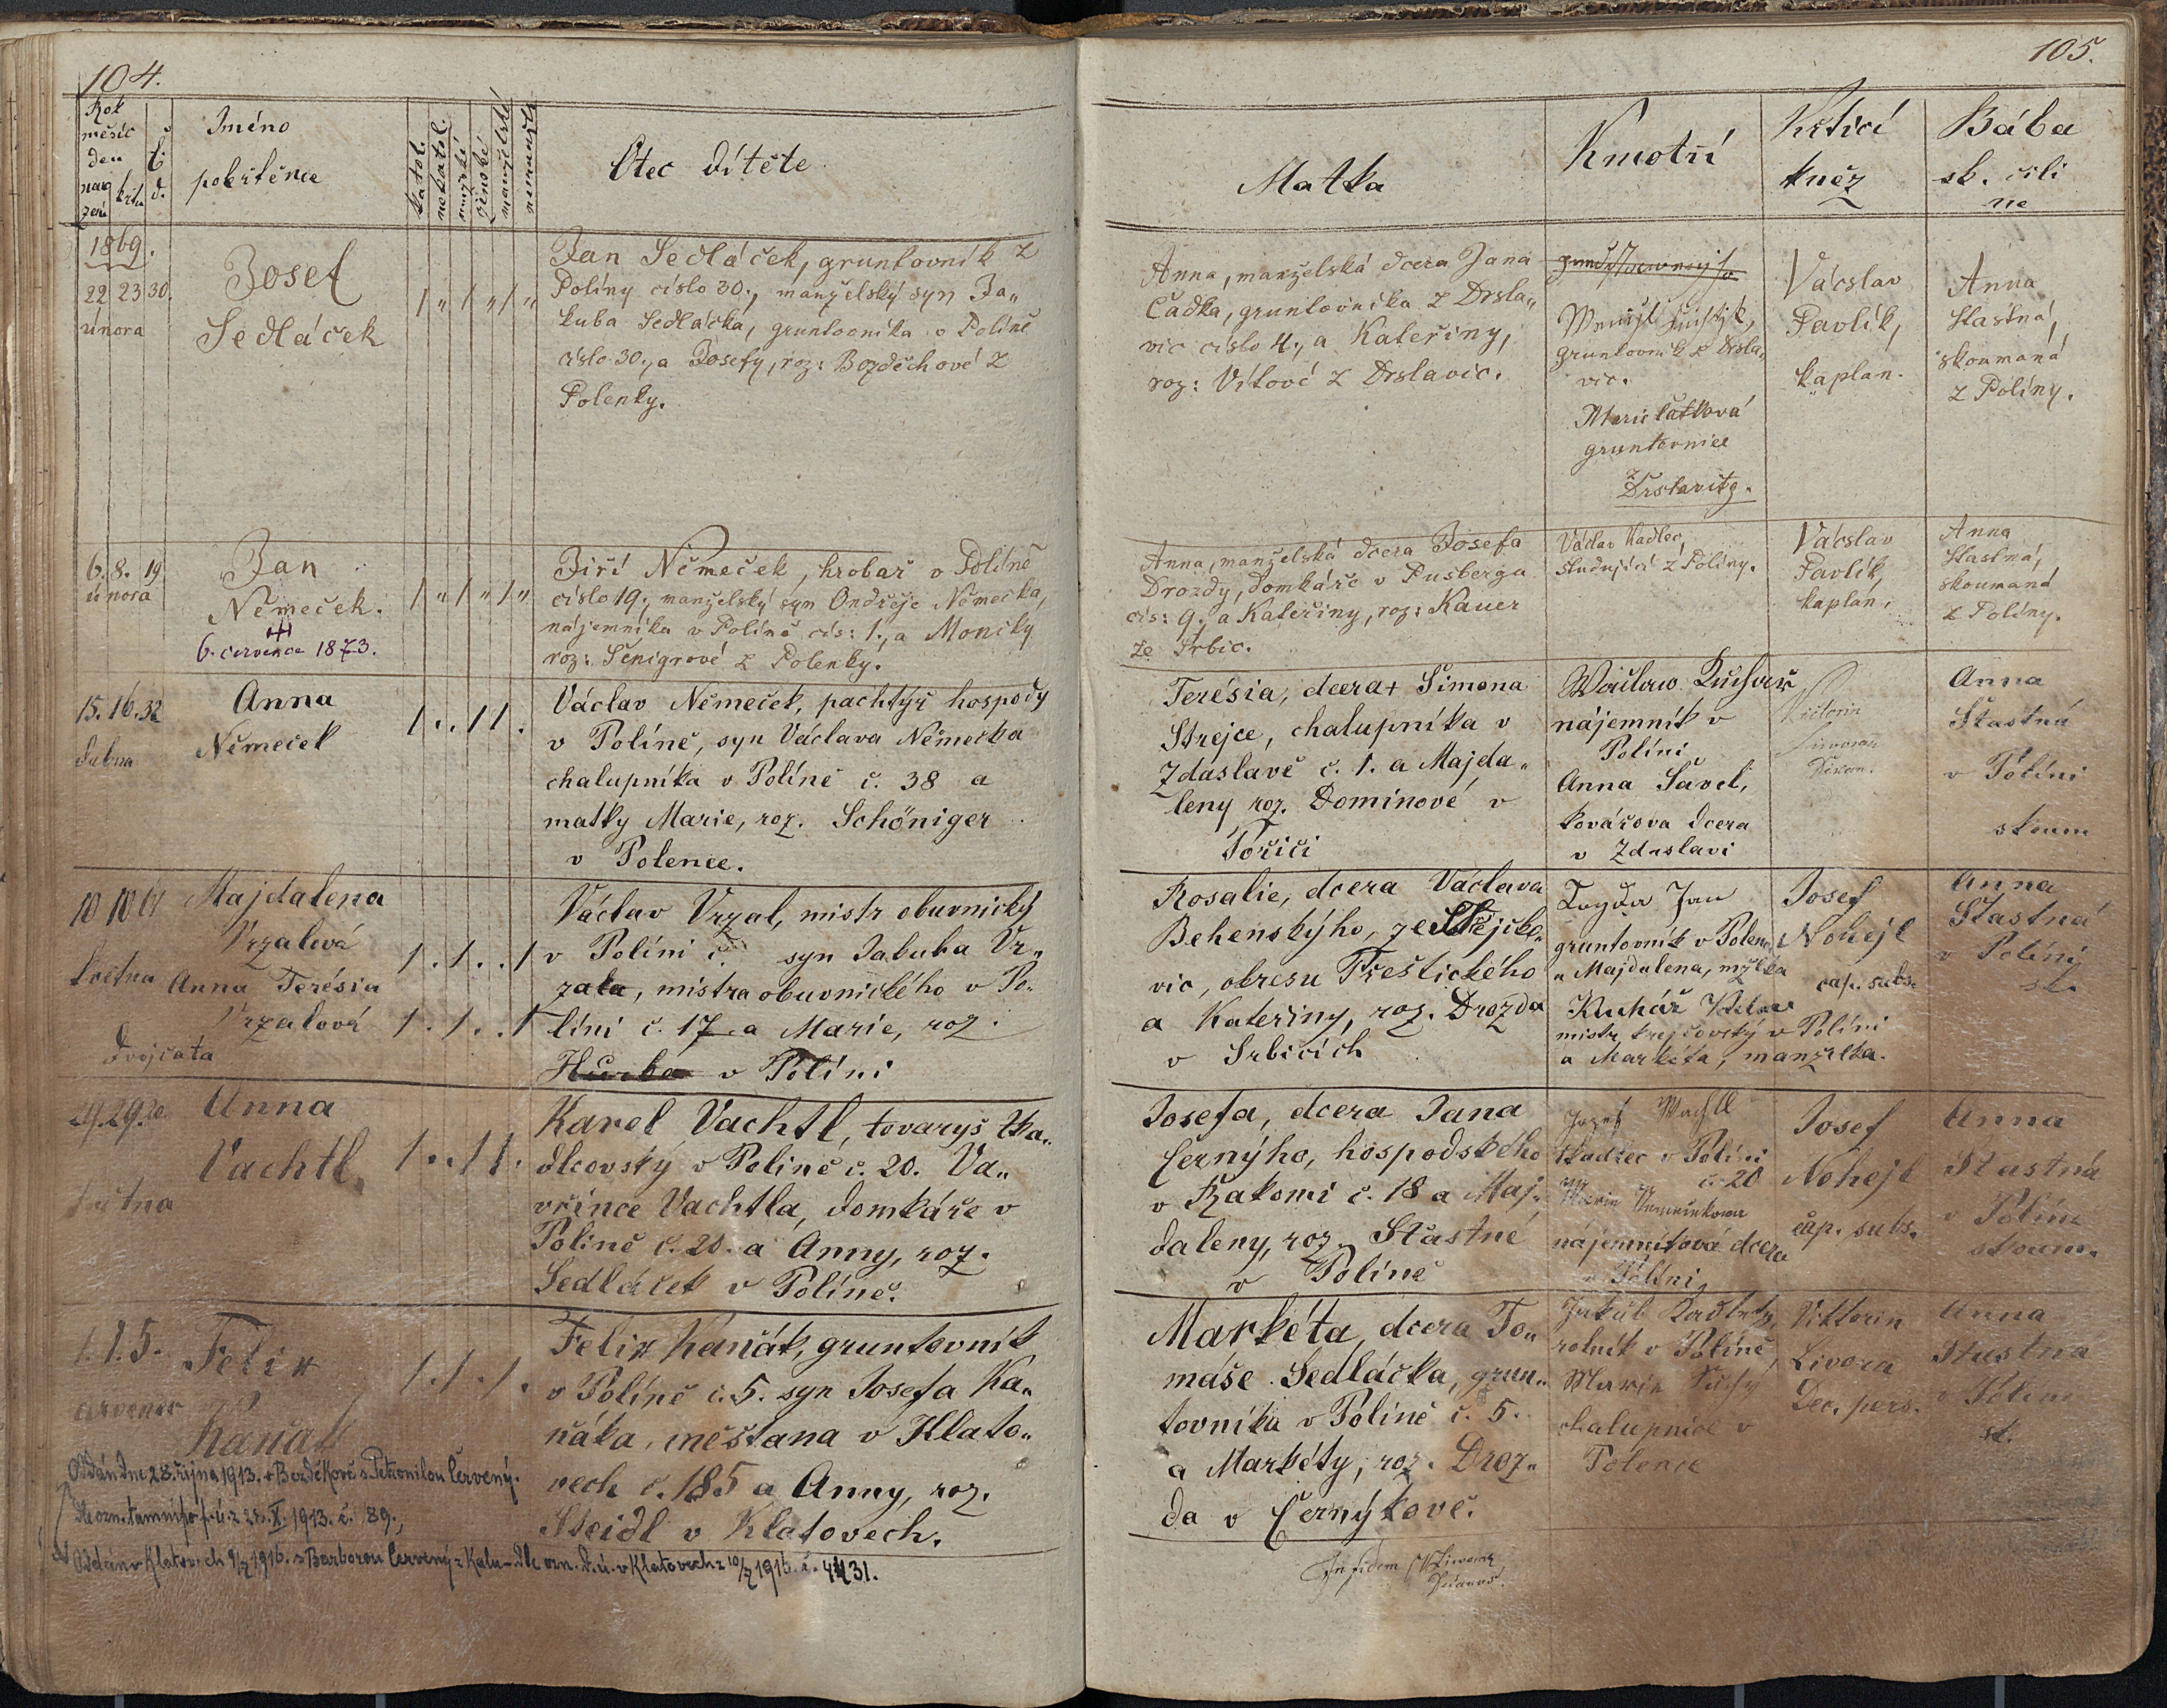 104.
Rok
měsíc
den
naro
zení
křtu
č.
d.
Jméno
pokřtěnce
katol.
nekatol.
mužské
ženské
manželské
nemanžel.
Otec dítěte
1869.
22 23 30.
února
Josef
Sedláček
1 " 1 " 1 "
Jan Sedláček, gruntovník z
Políny číslo 30., manželský syn Ja„
kuba Sedláčka, gruntovníka v Políně
číslo 30., a Josefy, roz: Bozděchové z
Polenky.
6. 8. 19
února
Jan
Němeček.
6. července 1873.
1 " 1 " 1 "
Jiří Němeček, hrobař v Políně
číslo 19., manželský syn Ondřeje Němečka,
nájemníka v Políně čís: 1., a Moniky
roz: Šenigrové z Polenky.
15. 16. 32
dubna
Anna
Němeček
1 . . 1 1 .
Václav Němeček, pachtýř hospody
v Políně, syn Václava Němečka
chalupníka v Políně č. 38 a
matky Marie, roz. Schöniger
v Polence.
10 10 17
května
Majdalena
Vrzalová
Anna Terésia
Vrzalová
dvojčata
1 . 1 . . 1
1 . 1 . . 1
Václav Vrzal, mistr obuvnický
v Políni č. syn Jakuba Vr„
zala, mistra obuvnického v Po„
líni č. 17 a Marie, roz.
v Políni
29. 29. 20
května
Anna
Vachtl.
1 . . 1 1 .
Karel Vachtl, tovaryš tka„
dlcovský v Políně č. 20. Va„
vřince Vachtla, domkáře v
Políně č. 20. a Anny, roz.
Sedláček v Políně.
1. 1. 5.
července
Felix
Kaňák
1 . 1 . 1 .
Felix Kaňák, gruntovník
v Políně č. 5. syn Josefa Ka„
ňáka, měšťana v Klato„
vech č. 185 a Anny, roz.
Steidl v Klatovech.
Oddán dne 28. října 1913. v Bezděkově s Petronilou Červený.
1913. č. 89.,
Oddán v Klatovech 9/7 1916. s Barborou Červený z Kalu - dle ozn. d. ú. v Klatovech z 10/7 1916. č. 4431.
105.
Matka
Kmotři
Křticí
kněz
Bába
sk. čili
ne
Anna, manželská dcera Jana
Čadka, gruntovníka z Drsla„
vic číslo 4., a Kateřiny,
roz: Vítové z Drslavic.
gruntovník z Drsla„
vic.
Marie Čatková
gruntovnice
z
Drslavitz.
Václav
Pavlík,
kaplan.
Anna
Šťastná,
skoumaná
z Políny.
Anna, manželská dcera Josefa
Drozdy, domkáře v Pušbergu
čís: 9., a Kateřiny, roz: Kauer
ze Srbic.
Václav Kadlec,
studující z Políny.
Václav
Pavlík,
kaplan.
Anna
Šťastná,
skoumaná
z Políny.
Terésia, dcera + Šimona
Strejce, chalupníka v
Zdaslavě č. 1. a Majda„
leny roz. Dominové v
Poříčí
Václav Kuchař
nájemník v
Políni
Anna Šavel,
kovářova dcera
v Zdaslavi
Victorin
Livora
Děkan.
Anna
Šťastná
v Políni
skoum
Rosalie, dcera Václava
Behenskýho, ze Střejčko„
vic, okresu Přeštického
a Kateřiny, roz. Drozda
v Srbicích
Jan
gruntovník v Polen
a Majdalena, mžlka
Kuchář Václav
mistr krejčovský v Políni
a Markéta, manželka.
Josef
Nohejl
cap. subs.
Anna
Šťastná
v Políni
sk.
Josefa, dcera Jana
Černýho, hospodského
v Rakomi č. 18 a Maj„
daleny, roz. Šťastné
v Políně
Josef Wachtl
tkadlec v Políni
č. 20
nájemníková dcera
v Políni
Josef
Nohejl
cap. subs.
Anna
Šťastná
v Políni
skoum.
Markéta, dcera To„
máše Sedláčka, grun„
tovníka v Políně č. 5.
a Markéty, roz. Droz„
da v Černýkově.
Jakub Kadletz,
rolník v Políně,
Marie Suchý
chalupnice v
Polence
Viktorin
Livora
Dec. pers.
Anna
Šťastná
v Políni
sk.
In fidem
Livora
Děkan